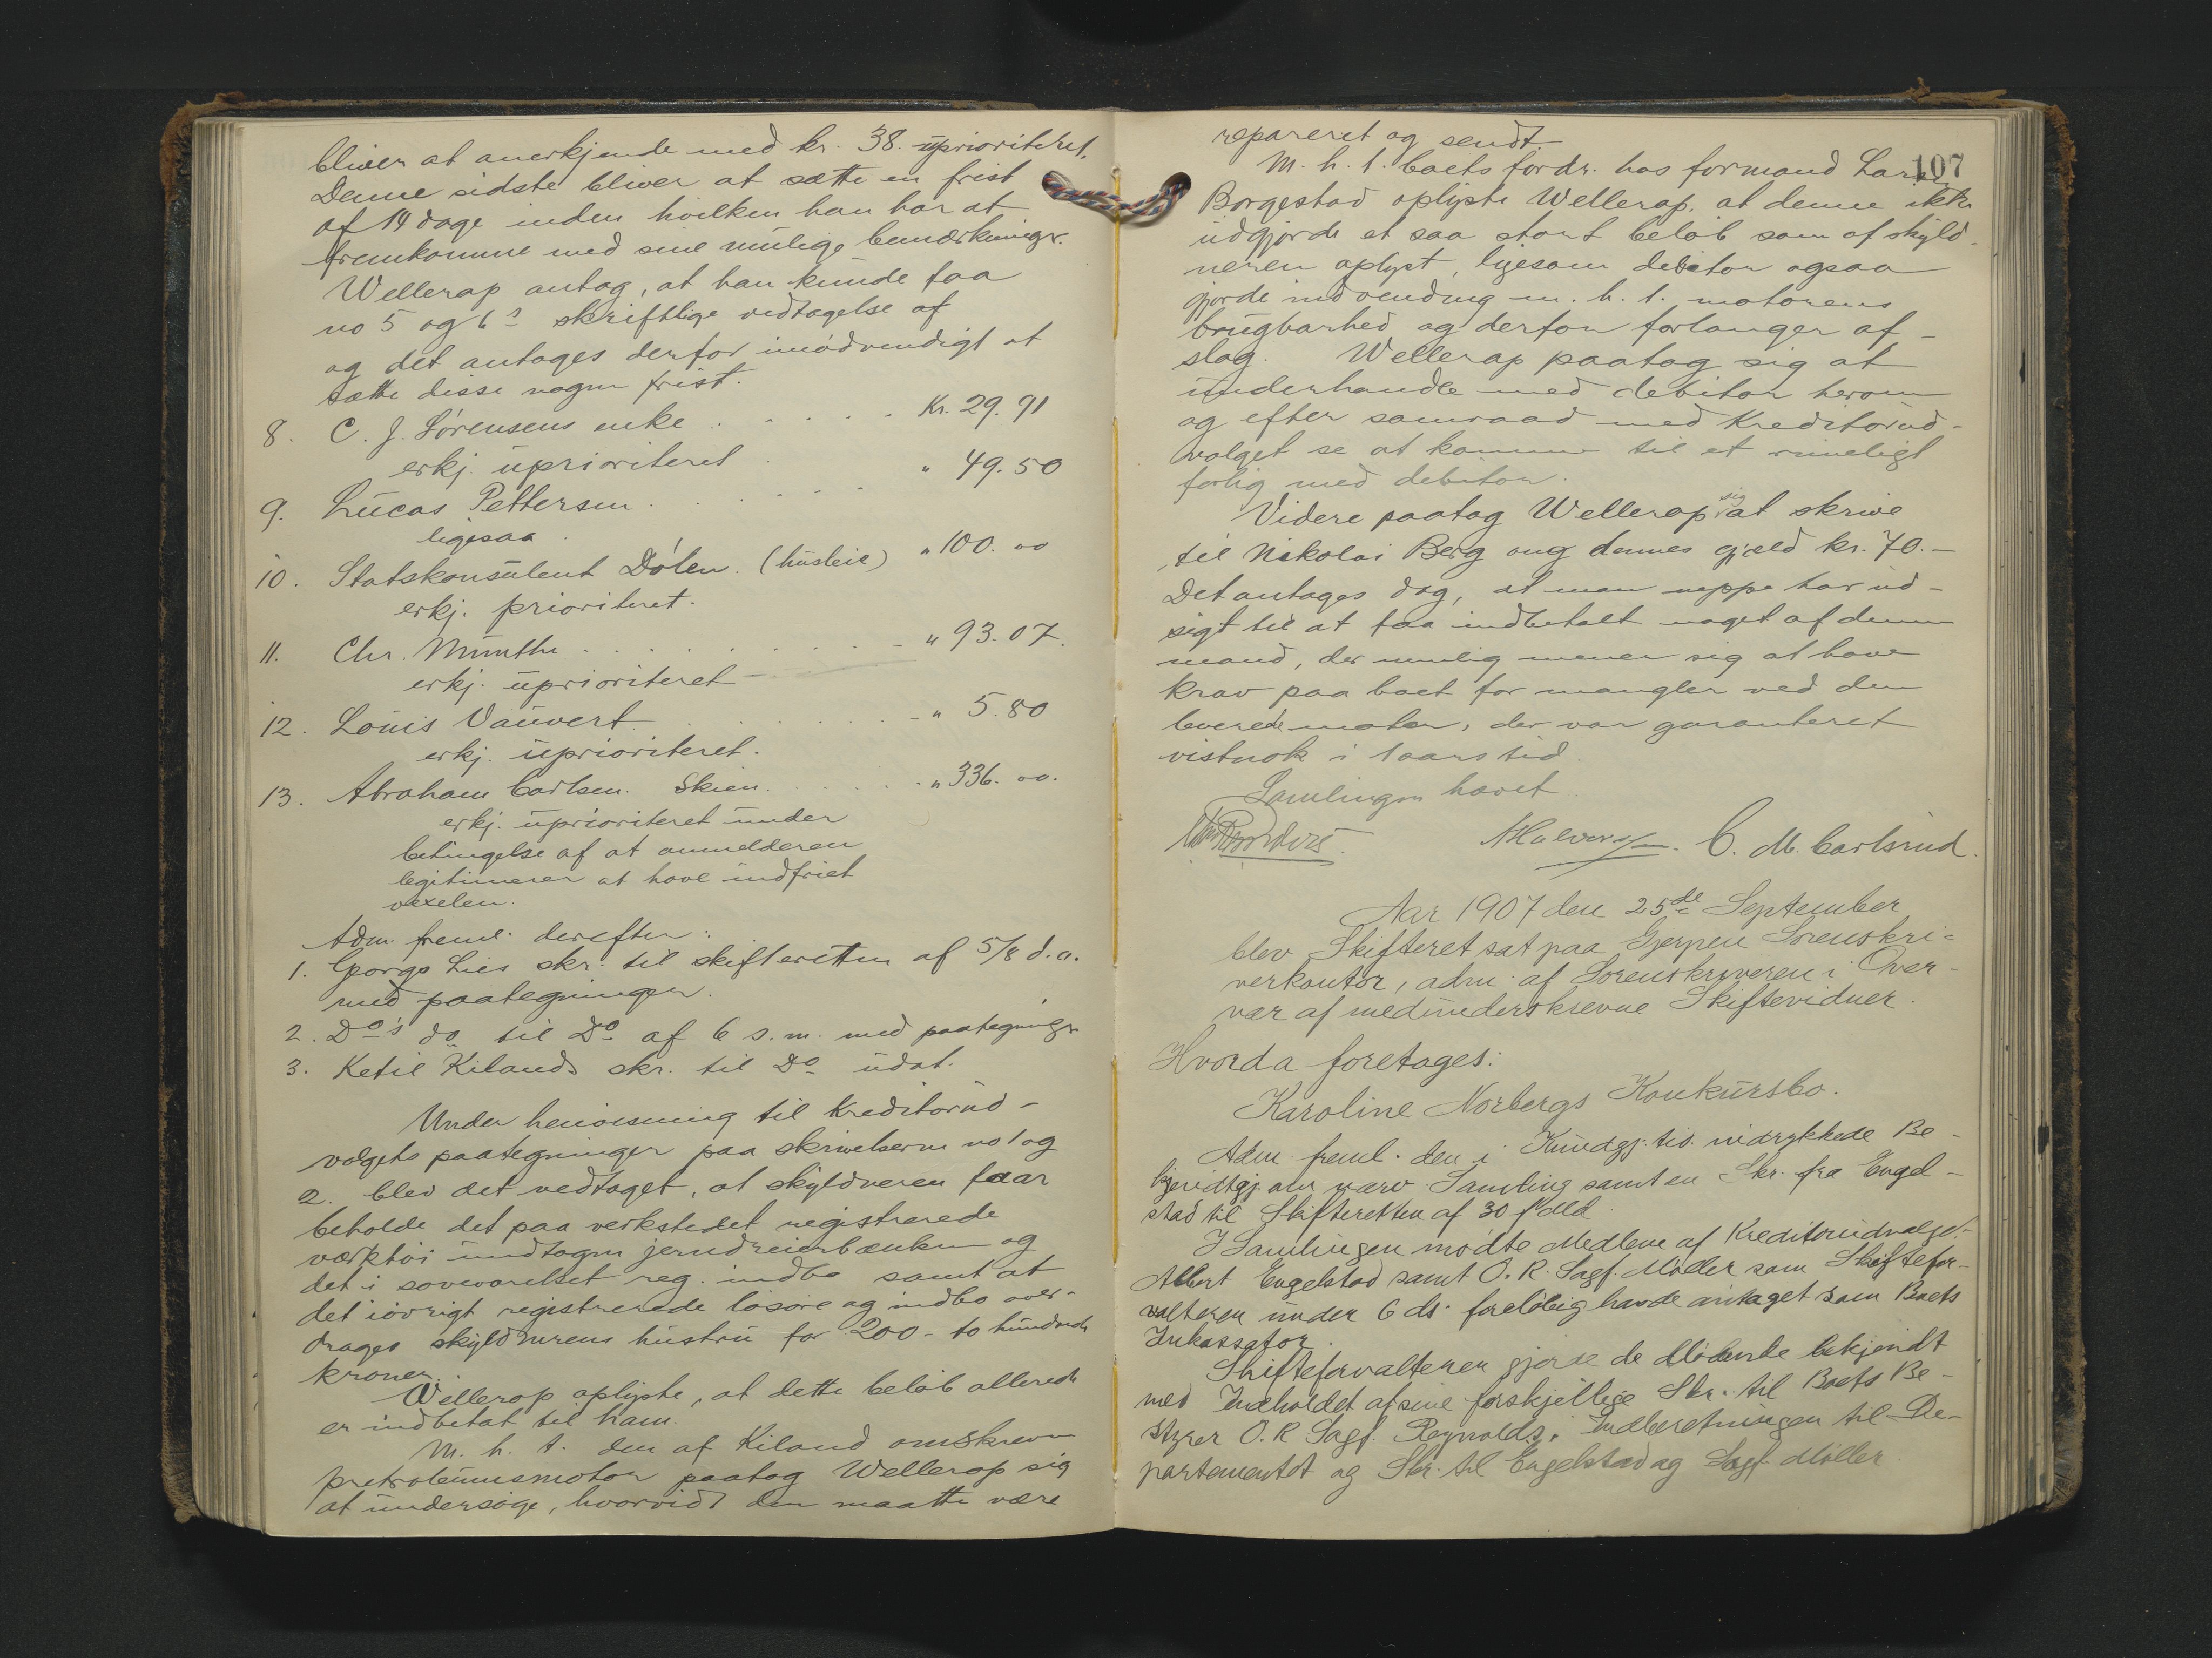 bliver at anerkjende med kr. 38. uprioriteret.
Denne sidste bliver at sætte en frist
af 14 dage inden hvilken han har at
fremkomme med sine mulige bemærkninger.
Wellerop antog, at han kunde faa
no 5 og 6s skriftlige vedtagelse af
og det antages derfor unødvendigt at
sætte disse nogen frist.
8. C. J. Sørensens enke . . . . . Kr. 29.91
erkj. uprioriteret
9. Lucas Pettersen . . . . . " 49.50
ligesaa.
10. Statskonsulent Dølen. (husleie) " 100.00
erkj. prioriteret.
11. Chr. Munthe . . . . . " 93.07.
erkj. uprioriteret
12. Louis Vauvert . . . . . " 5.80
erkj. uprioriteret.
13. Abraham Carlsen. Skien. . . . . " 336.00.
erkj. uprioriteret under
betingelse af at anmelderen
legitimerer at have indfriet
vexelen.
Adm. freml. derefter:
1. George Lies skr. til skifteretten af 5/8 d.a.
med paategninger.
2. Do's do til Do af 6 s.m. med paategninger
3. Ketil Kilands skr. til Do udat.
Under henvisning til Kreditorud-
valgets paategninger paa skrivelserne no 1 og
2. blev det vedtaget, at skyldneren faar
beholde det paa verkstedet registrerede
værktøi undtagen jerndreierbænken og
det i soveværelset reg. indbo samt at
det iøvrigt registrerede løsøre og indbo over-
drages skyldnerens hustru for 200- to hundrede
kroner.
Wellerop oplyste, at dette beløb allerede
er indbetalt til ham.
M. h. t. den af Kiland omskrevne
petroleumsmotor paatog Wellerop sig
at undersøge, hvorvidt den maatte være
107
repareret og sendt.
M. h. t. boets fordr. hos formand
Borgestad oplyste Wellerop, at denne ikke
udgjorde et saa stort beløb som af skyld-
neren oplyst, ligesom debitor ogsaa
gjorde indvending m. h. t. motorens
brugbarhed og derfor forlanger af-
slag. Wellerop paatog sig at
underhandle med debitor herom
og efter samraad med Kreditorud-
valget se at komme til et rimeligt
forlig med debitor.
Videre paatog Wellerop sig at skrive
til Nikolai Berg ang dennes gjæld kr. 70.-
Det antages dog, at man neppe har ud-
sigt til at faa indbetalt noget af denne
mand, der nemlig mener sig at have
krav paa boet for mangler ved den
leverede motor, der var garanteret
vistnok i 1 aars tid.
Samlingen hævet.
AHalvorsen. C. M. Carlsrud.
Aar 1907 den 25de September
blev Skifteret sat paa Gjerpen Sorenskri-
verkontor, adm. af Sorenskriveren i Over-
vær af medunderskrevne Skiftevidner.
Hvorda foretages:
Karoline Norbergs Konkursbo.
Adm. freml. den i Kundgj. tid. indrykkede Be-
kjendtgj. om nærv. Samling samt en Skr. fra Engel-
stad til Skifteretten af 30 f. Md.
I Samlingen mødte Medlem af Kreditorudvalget
Albert Engelstad samt O. R. Sagf. Møller som Skiftefor-
valteren under 6 ds. foreløbig havde antaget som Boets
Inkassator.
Skifteforvalteren gjorde de Mødende bekjendt
med Indholdet af sine forskjellige Skr. til Boets Be-
styrer O. R Sagf. Reynolds, Indberetningen til De-
partementet og Skr. til Engelstad og Sagf. Møller.